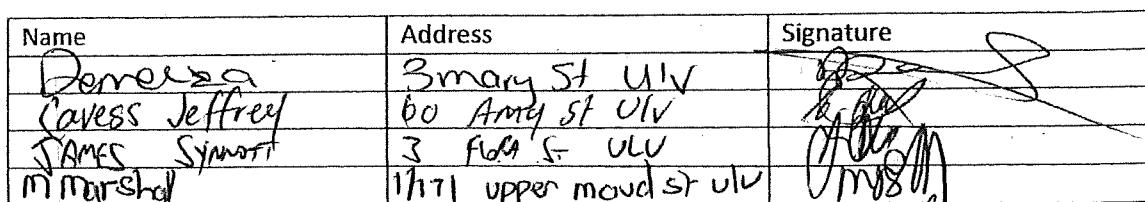 Name Address Signature
Demelza 3 mary St Ulv
Jeffrey 60 Amy St Ulv
JAMES SYNNOTT 3 FLORA ST ULV
M Marshall 1/171 upper maud st ulv